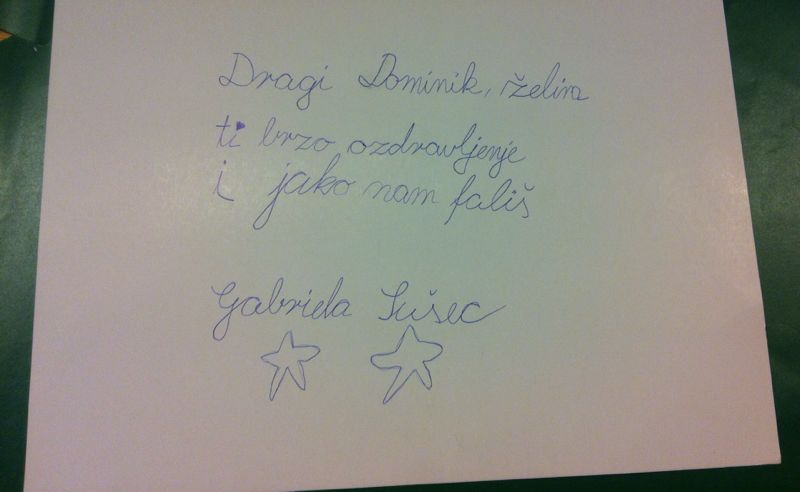 Dragi Dominik, želim
ti brzo ozdravljenje
i jako nam fališ
Gabriela Sušec